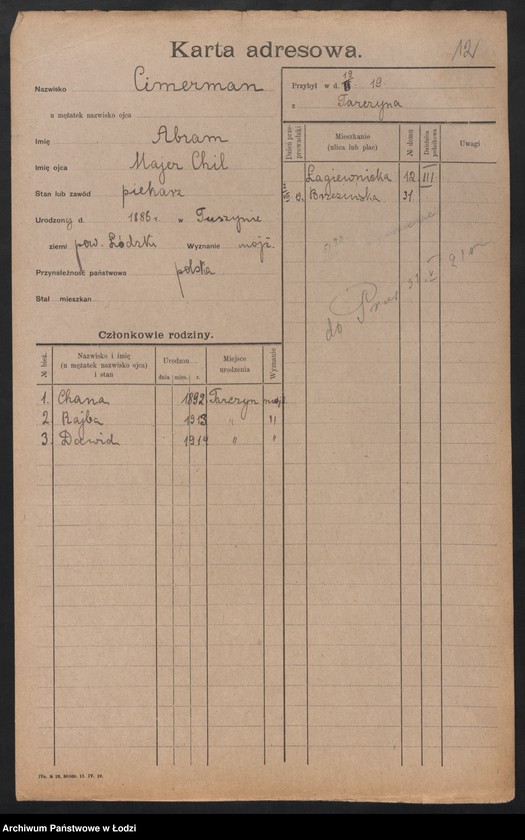 Karta adresowa.
12
Nazwisko Cimerman
u mężatek nazwisko ojca
Imię Abram
Imię ojca Majer Chil
Stan lub zawód piekarz
Urodzony d. 1886 r. w Tuszynie
ziemi pow. Łódzki Wyznanie mojż.
Przynależność państwowa polska
Stał. mieszkan.
Przybył w d. 19 19
z Tarczyna
Dzień prze-prowadzki
Mieszkanie
(ulica lub plac)
№ domu
Dzielnica polickowa
Uwagi
Łagiewnicka 12 III
Brzezińska 31
do
Członkowie rodziny.
№ bież.
Nazwisko i imię
(u mężatek nazwisko ojca)
i stan
Urodzon.
dnia mies. r.
Miejsce
urodzenia
Wyznanie
1. Chana 1892 Tarczyn mojż.
2. Rajba 1913 " "
3. Dawid 1914 " "
Archiwum Państwowe w Łodzi